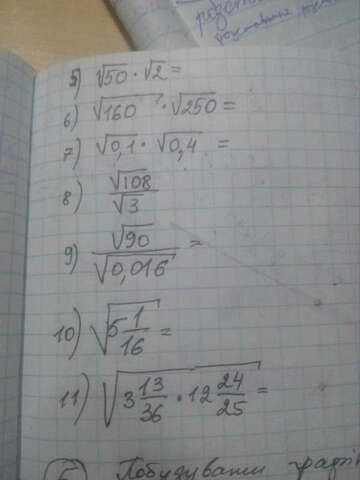 5) √50 · √2 =
6) √160 · √250 =
7) √0,1 · √0,4 =
8) √108 / √3
9) √90 / √0,016 =
10) √(5 1/16) =
11) √(3 13/36 · 12 24/25) =
Побудувати графік